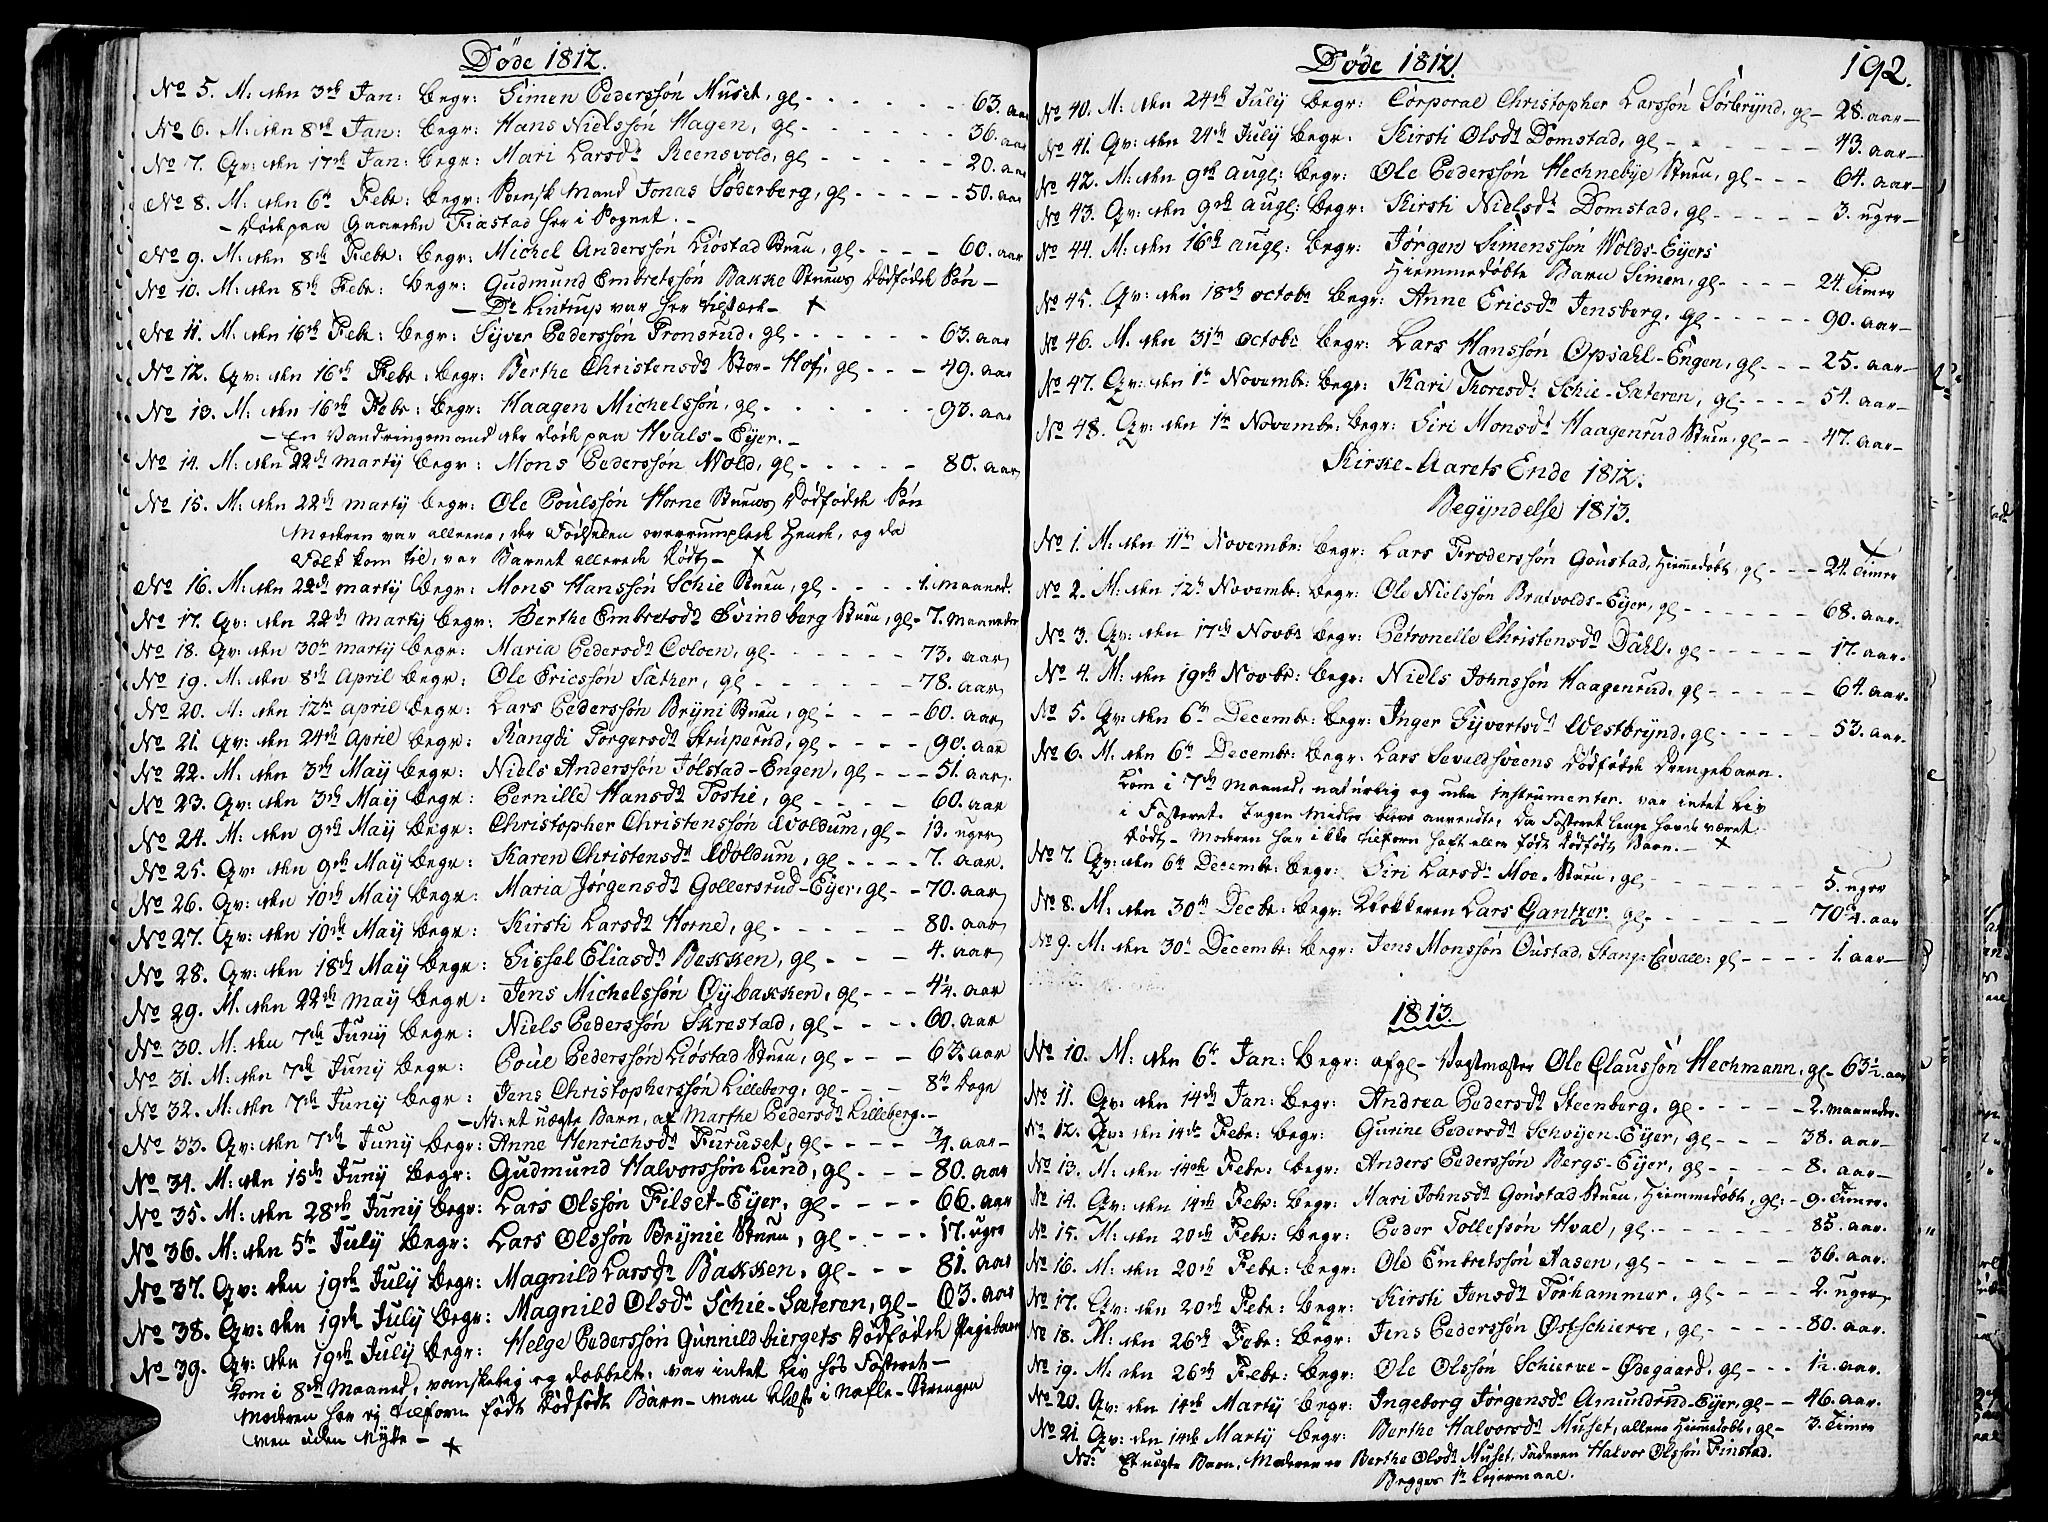 Døde 1812.
No 5. M: den 3die Jan: Begr: Simen Pederssøn Muset, gl - - - - - - 63. aar
No 6. M: den 8de Jan: Begr: Hans Nielssøn Hagen, gl - - - - - - 36. aar
No 7. Qv: den 17de Jan: Begr: Mari Larsdr Reensvold, gl - - - - - 20. aar
No 8. M: den 6te Febr: Begr: Svensk Mand Jonas Søderberg, gl - - - - - 50. aar
- Døde paa Gaarden Fiastad her i Sognet. -
No 9. M: den 8de Febr: Begr: Michel Anderssøn Liøstad Stuen, gl - - - - 60. aar
No 10. M: den 8de Febr: Begr: Gudmund Embretssøn Bakke Stuens Dødfødde Søn -
- Dr Lintrup var her tilstæde - +
No 11. M: den 16de Febr: Begr: Syver Pederssøn Tronsrud, gl - - - - - - 63. aar
No 12. Qv: den 16de Febr: Begr: Berthe Christensdr Stor-Hof, gl - - - 49. aar
No 13. M: den 16de Febr: Begr: Haagen Michelssøn, gl - - - - - - - 93. aar
- En Vandringsmand der døde paa Hvals-Eyer. -
No 14. M: den 22de Martij Begr: Mons Pederssøn Wold, gl - - - - - 80. aar
No 15. M: den 22de Martij Begr: Ole Poulssøn Horne Stuens Dødfødde Søn
Moderen var alleene, der Fødselen overrumplede hende, og da
Folk kom til, var Barnet allerede dødt - +
No 16. M: den 22de Martij Begr: Mons Hanssøn Schie Stuen, gl - - - - 1. maaned.
No 17. Qv: den 22de Martij Begr: Berthe Embretsdr Svindberg Stuen, gl - 7. maaneder
No 18. Qv: den 30te Martij Begr: Maria Pedersdr Coloen, gl - - - - - - 73. aar
No 19. M: den 8de April Begr: Ole Ericssøn Sæther, gl - - - - - - 78. aar
No 20. M: den 12te April Begr: Lars Pederssøn Bryni Stuen, gl - - - - 60. aar
No 21. Qv: den 24de April Begr: Rangdi Torgersdr Struperud, gl - - - - 90. aar
No 22. M: den 3die Maij Begr: Niels Anderssøn Jølstad-Engen, gl - - - 51. aar
No 23. Qv: den 3die Maij Begr: Pernille Hansdr Tostie, gl - - - - 60. aar
No 24. M: den 9de Maij Begr: Christopher Christenssøn Woldum, gl - 13. uger
No 25. Qv: den 9de Maij Begr: Karen Christensdr Woldum, gl - - - - 7. aar.
No 26. Qv: den 10de Maij Begr: Maria Jørgensdr Gollersrud-Eyer, gl - - 70. aar
No 27. Qv: den 10de Maij Begr: Kirsti Larsdr Horne, gl - - - - - 80. aar
No 28. Qv: den 18de Maij Begr: Sissel Eliasdr Bakken, gl - - - - 4. aar
No 29. M: den 22de Maij Begr: Jens Michelssøn Øybakken, gl - - - 4½ aar
No 30. M: den 7de Junij Begr: Niels Pederssøn Skrestad, gl - - - - 60. aar
No 31. M: den 7de Junij Begr: Poul Pederssøn Liøstad Stuen, gl - - - 63. aar
No 32. M: den 7de Junij Begr: Jens Christopherssøn Lilleberg, gl - - - 8te Dage
- NB: et uægte Barn, af Marthe Pedersdr Lilleberg. -
No 33. Qv: den 7de Junij Begr: Anne Henrichsdr Furuset, gl - - - - ¾. aar -
No 34. M: den 15de Junij Begr: Gudmund Halvorssøn Lund, gl - - - 80. aar
No 35. M: den 28de Junij Begr: Lars Olssøn Filset-Eyer, gl - - - - 66. aar
No 36. M: den 5te July Begr: Lars Olssøn Brynie Stuen, gl - - - - 17. uger
No 37. Qv: den 19de July Begr: Magnild Larsdr Bakken, gl - - - 81. aar
No 38. Qv: den 19de July Begr: Magnild Olsdr Schie-Sæteren, gl - 63. aar
No 39. Qv: den 19de July Begr: Helge Pederssøn Gunnildbiergets Dødfødde Pigebarn
Kom i 8de Maaned, vanskelig og dobbelt, var intet Liv hos Fosteret -
Moderen har ej tilforn født dødfødt Barn - man blæste i Nafle-Strengen
men uden Nytte - +
Døde 1812.
192.
No 40. M: den 24de July Begr: Corporal Christopher Larssøn Sørbrynd, gl - 28. aar -
No 41. Qv: den 24de July Begr: Kirsti Olsdr Domstad, gl - - - - - - - 43. aar -
No 42. M: den 9de Augl: Begr: Ole Pederssøn Hechnebye Stuen, gl - - - 64. aar -
No 43. Qv: den 9de Augl: Begr: Kirsti Nielsdr Domstad, gl - - - - - 3. uger -
No 44. M: den 16de Augl: Begr: Jørgen Simenssøn Wolds-Eyers
Hiemmedøbte Barn Simen, gl - - - - 24. Timer
No 45. Qv: den 18de Octobr Begr: Anne Ericsdr Jensberg, gl - - - - - 90. aar -
No 46. M: den 31te Octobr Begr: Lars Hanssøn Opsahl-Engen, gl - - - 25. aar -
No 47. Qv: den 1te Novembr: Begr: Kari Thoresdr Schie-Sæteren, gl - - - - 54. aar -
No 48. Qv: den 1te Novembr: Begr: Siri Monsdr Haagenrud Stuen, gl - - - 47. aar -
Kirke-Aarets Ende 1812.
Begyndelse 1813.
No 1. M: den 11te Novembr: Begr: Lars Troderssøn Goustad, Hiemmedøbt, gl - - - 24. Timer
No 2. M: den 12te Novembr: Begr: Ole Nielssøn Bratvolds-Eyer, gl - - - - - - 68. aar.
No 3. Qv: den 17de Novbr Begr: Petronelle Christensdr Dahl, gl - - - - - 17. aar.
No 4. M: den 19de Novbr: Begr: Niels Johnssøn Haagenrud, gl - - - - - 64. aar.
No 5. Qv: den 6te Decembr: Begr: Inger Syvertsdr Westbrynd, gl - - - - - 53. aar.
No 6. M. den 6te Decembr: Begr: Lars Sevaldsveens Dødfødde Drengebarn.
Kom i 7de Maaned, naturlig og uden Instrumenter. var intet Liv
i Fosteret. Ingen Midler bleve anvendte, da Fosteret længe havde været
dødt - Moderen har ikke tilforn haft eller født dødfødt Barn. - +
No 7. Qv: den 6te Decembr: Begr: Siri Larsdr Moe-Stuen, gl - - - - - - - - 5. uger
No 8. M. den 30te Decbr: Begr: Klokkeren Lars Gantzer gl - - - - - - - 70¾. aar
No 9. M: den 30te Decembr: Begr: Jens Monssøn Oustad, Stang: Cavall: gl - - - - 1. aar -
1813.
No 10. M: den 6te Jan: Begr: afgl - Vagtmæster Ole Claussøn Hechmann, gl - 63½. aar
No 11. Qv: den 14de Jan: Begr: Andrea Pedersdr Steenberg, gl - - - - - 2. maaneder.
No 12. Qv: den 14de Febr: Begr: Gurine Pedersdr Schøyen-Eyer, gl - - - 38. aar -
No 13. M: den 14de Febr: Begr: Anders Pederssøn Bergs-Eyer, gl - - - - 8. aar -
No 14. Qv: den 14de Febr: Begr: Mari Johnsdr Goustad Stuen, Hiemmedøbt, gl: - 9. Timer.
No 15. M: den 20de Febr: Begr: Peder Tollefsøn Hval, gl - - - - - - 85. aar.
No 16. M: den 20de Febr: Begr: Ole Embretssøn Aasen, gl - - - - - - 36. aar.
No 17. Qv: den 20de Febr: Begr: Kirsti Jensdr Torhammer, gl - - - - - 2. uger
No 18. M: den 26de Febr: Begr: Jens Pederssøn Østschierve, gl - - - - - 80. aar.
No 19. M: den 26de Febr: Begr: Ole Olssøn Schierve-Ødegaard, gl - - - 1½. aar.
No 20. Qv: den 14de Martij Begr: Ingeborg Jørgensdr Amundrud-Eyer, gl - - 46. aar.
No 21. Qv: den 14de Martij Begr: Berthe Halvorsdr Muset, allene Hiemmedøbt, gl - 3. Timer
NB: Et uægte Barn. Moderen er Berthe Olsdr Muset, Faderen Halvor Olssøn Finstad.
Begges 1te Leiermaal.